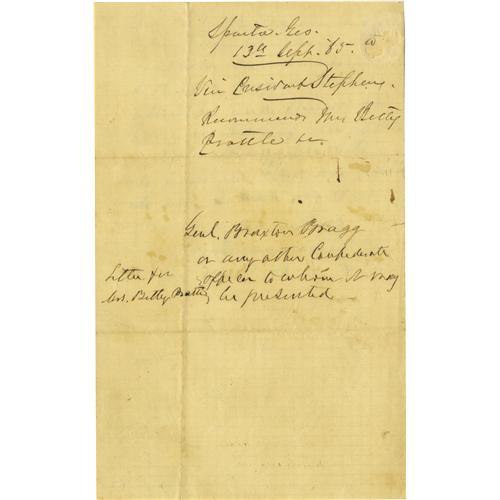 Sparta Geo.
13th Sept. 65
Vice President Stephens.
Recommends Mrs Betty
Prattle &c.
Genl. Braxton Bragg
or any other Confederate
officer to whom it may
be presented
Letter for
Mrs. Betty Prattle